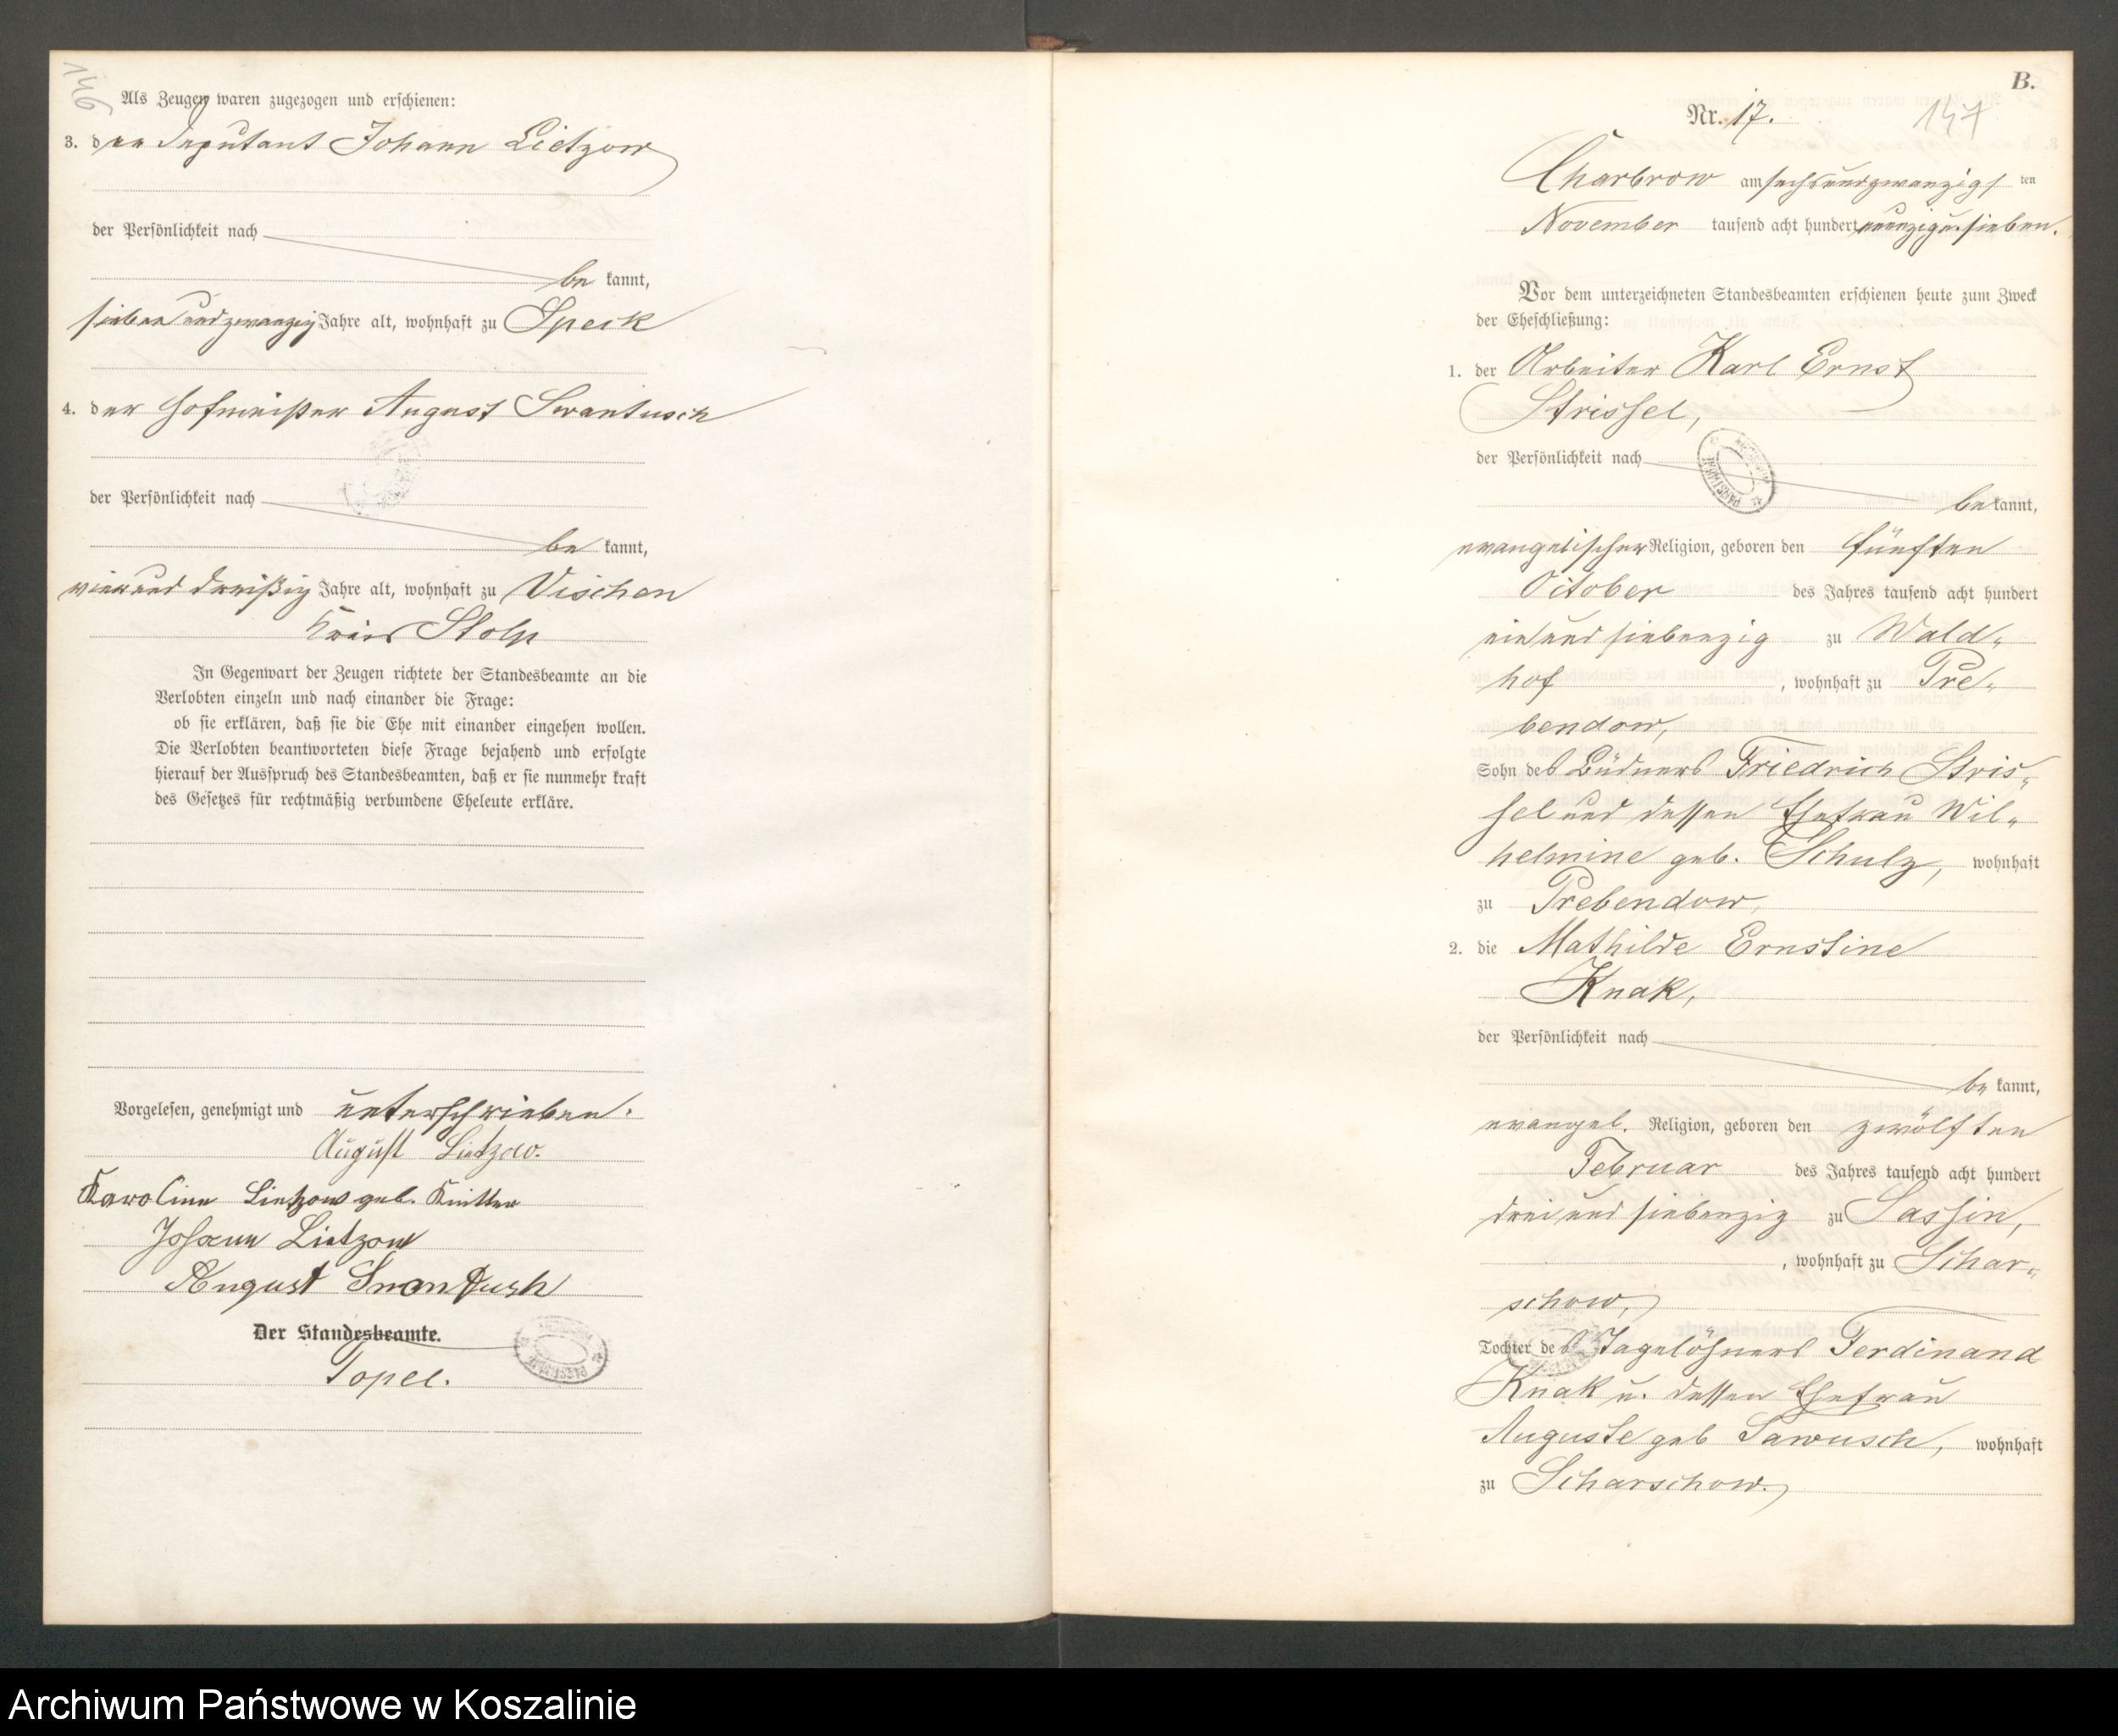 146
Als Zeugen waren zugezogen und erschienen:
3. der Deputant Johann Lietzow
der Persönlichkeit nach
be kannt,
siebenundzwanzig Jahre alt, wohnhaft zu Speck
4. der Hofmeister August Swantusch
der Persönlichkeit nach
be kannt,
vierunddreißig Jahre alt, wohnhaft zu Vischen
Kreis Stolp
In Gegenwart der Zeugen richtete der Standesbeamte an die
Verlobten einzeln und nach einander die Frage:
ob sie erklären, daß sie die Ehe mit einander eingehen wollen.
Die Verlobten beantworteten diese Frage bejahend und erfolgte
hierauf der Ausspruch des Standesbeamten, daß er sie nunmehr kraft
des Gesetzes für rechtmäßig verbundene Eheleute erkläre.
Vorgelesen, genehmigt und unterschrieben.
August Lietzow.
Karoline Lietzow geb. Knitter
Johann Lietzow
August Swantush
Der Standesbeamte.
Topel.
B.
Nr. 17.
147
Charbrow am sechsundzwanzigs ten
November tausend acht hundert neunzig u. sieben.
Vor dem unterzeichneten Standesbeamten erschienen heute zum Zweck
der Eheschließung:
1. der Arbeiter Karl Ernst
Strissel,
der Persönlichkeit nach
be kannt,
evangelischer Religion, geboren den fünften
October des Jahres tausend acht hundert
ein und siebenzig zu Wald„
hof , wohnhaft zu Pre„
bendow,
Sohn des Büdners Friedrich Stris„
sel und dessen Ehefrau Wil„
helmine geb. Schulz, wohnhaft
zu Prebendow,
2. die Mathilde Ernstine
Knak,
der Persönlichkeit nach
be kannt,
evangel. Religion, geboren den zwölften
Februar des Jahres tausend acht hundert
drei und siebenzig zu Sassin,
, wohnhaft zu Schar„
schow,
Tochter des Tagelöhners Ferdinand
Knak u. dessen Ehefrau
Auguste geb Sawusch, wohnhaft
zu Scharschow.
Archiwum Państwowe w Koszalinie